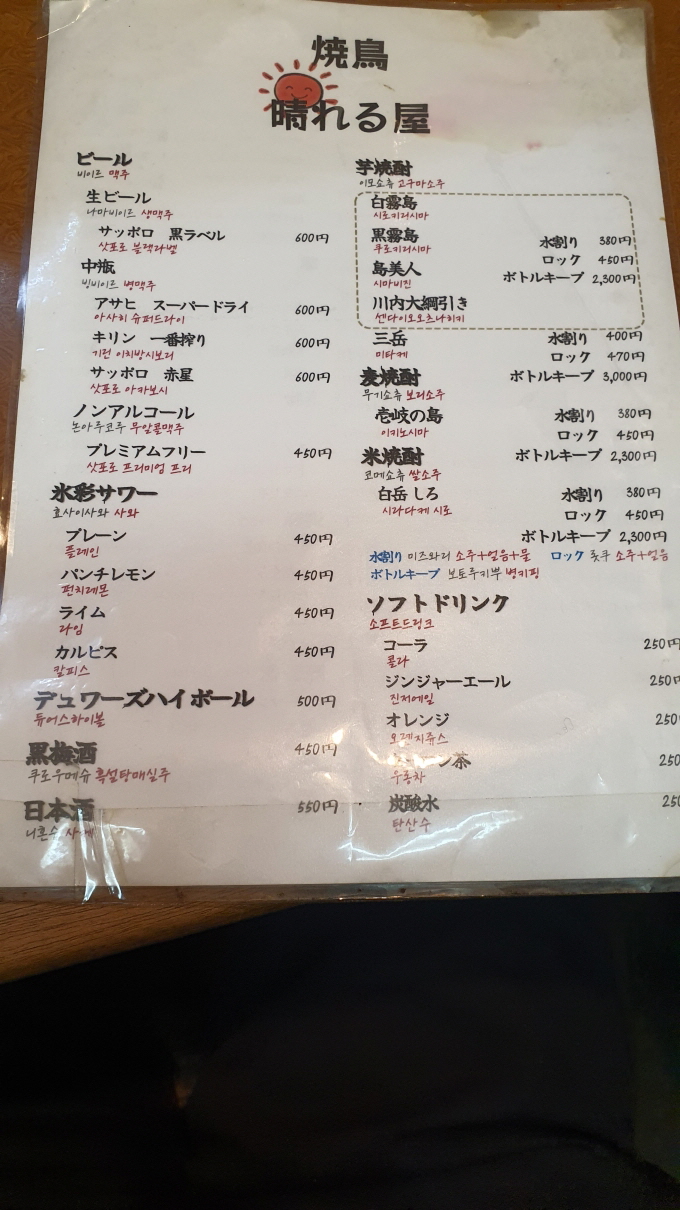 焼鳥
晴れる屋
ビール
비이르 맥주
生ビール
나마비이르 생맥주
サッポロ 黒ラベル 600円
삿포로 블랙라벨
中瓶
빙비이르 병맥주
アサヒ スーパードライ 600円
아사히 슈퍼드라이
キリン 一番搾り 600円
기린 이치방시보리
サッポロ 赤星 600円
삿포로 아카보시
ノンアルコール
논아루코루 무알콜맥주
プレミアムフリー 450円
삿포로 프리미엄 프리
氷彩サワー
효사이사와 사와
プレーン 450円
플레인
パンチレモン 450円
펀치레몬
ライム 450円
라임
カルピス 450円
칼피스
デュワーズハイボール 500円
듀어스하이볼
黒梅酒 450円
쿠로우메슈 흑설탕매실주
日本酒 550円
니혼슈 사케
芋焼酎
이모쇼츄 고구마소주
白霧島
시로키리시마
黒霧島 水割り 380円
쿠로키리시마
ロック 450円
島美人 ボトルキープ 2,300円
시마비진
川内大綱引き
센다이오오츠나히키
三岳 水割り 400円
미타케
ロック 470円
麦焼酎 ボトルキープ 3,000円
무기쇼츄 보리소주
壱岐の島 水割り 380円
이키노시마
ロック 450円
米焼酎 ボトルキープ 2,300円
코메쇼츄 쌀소주
白岳 しろ 水割り 380円
시라다케 시로
ロック 450円
ボトルキープ 2,300円
水割り 미즈와리 소주+얼음+물 ロック 롯쿠 소주+얼음
ボトルキープ 보토루키뿌 병키핑
ソフトドリンク
소프트드링크
コーラ 250円
콜라
ジンジャーエール 250円
진저에일
オレンジ 250
오렌지쥬스
茶 250
우롱차
炭酸水 250
탄산수